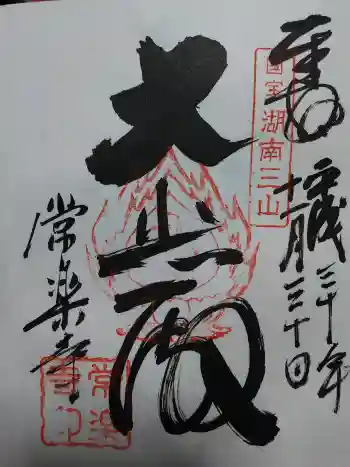 奉拝
平成三十年
十一月三十日
国宝湖南三山
大悲
常楽寺
常楽寺印